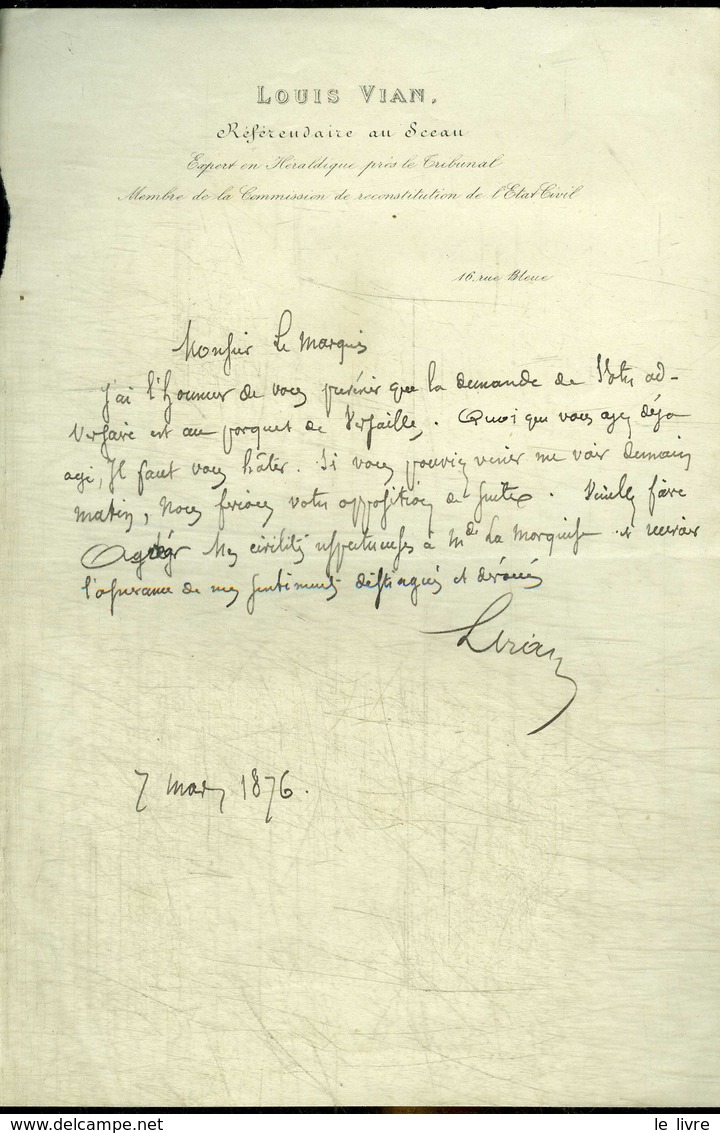 LOUIS VIAN,
Référendaire au Sceau
Expert en Héraldique près le Tribunal
Membre de la Commission de reconstitution de l'Etat Civil
16, rue Bleue
Monsieur Le Marquis
J'ai l'honneur de vous prévenir que la demande de Votre ad-
versaire est au parquet de Versailles. Quoi que vous ayez déjà
agi, Il faut vous hâter. Si vous pouviez venir me voir demain
matin, nous ferions votre opposition de suite. Veuillez faire
Agréer Mes civilités respectueuses à Mde La Marquise et recevoir
l'assurance de mes sentiments distingués et dévoués
LVian
7 mars 1876.
le livre